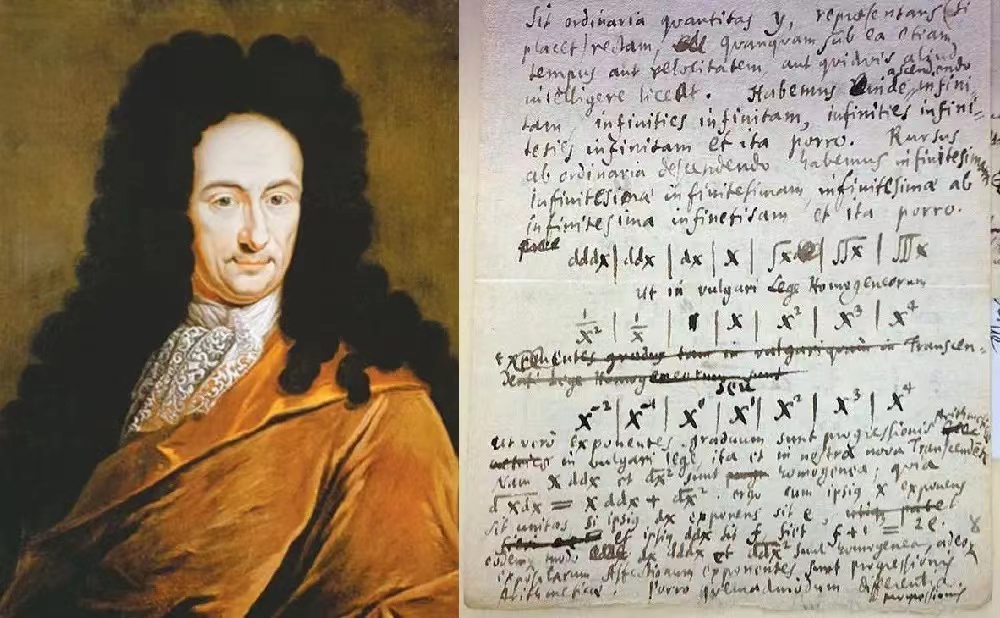 Sit ordinaria quantitas y, repraesentans (si
placet) rectam, quanquam sub ea etiam
tempus aut velocitatem, aut quidvis aliud
intelligere liceat. Habemus inde ascendendo infini-
tam, infinities infinitam, infinities infini-
ties infinitam et ita porro. Rursus
ab ordinaria descendendo habemus infinitesimam
infinitesima infinitesimam, infinitesima ab
infinitesima infinitesimam et ita porro.
dddx | ddx | dx | x | ∫x | ∫∫x | ∫∫∫x
ut in vulgari Lege Homogeneorum
1/x² | 1/x | 1 | x | x² | x³ | x⁴
exponentes gradus tam in vulgari quam in Transcen-
dentali Lege Homogeneorum sunt
seu
x⁻² | x⁻¹ | x⁰ | x¹ | x² | x³ | x⁴
ut vero exponentes graduum sunt progressionis Arithmeticae
in vulgari lege, ita et in nostra nova Transcendent
Nam x ddx et dx² sunt homogenea, quia
d xdx = x ddx + dx². ergo cum ipsius x exponens
sit unitas si ipsius dx exponens sit e,
et ipsius ddx sit f, fiet f + 1 = 2e.
eodem modo dx dddx et ddx² sunt homogenea, adeoque
exponentes sunt progressionis
Arithmeticae. Porro quemadmodum differentia
progressionis